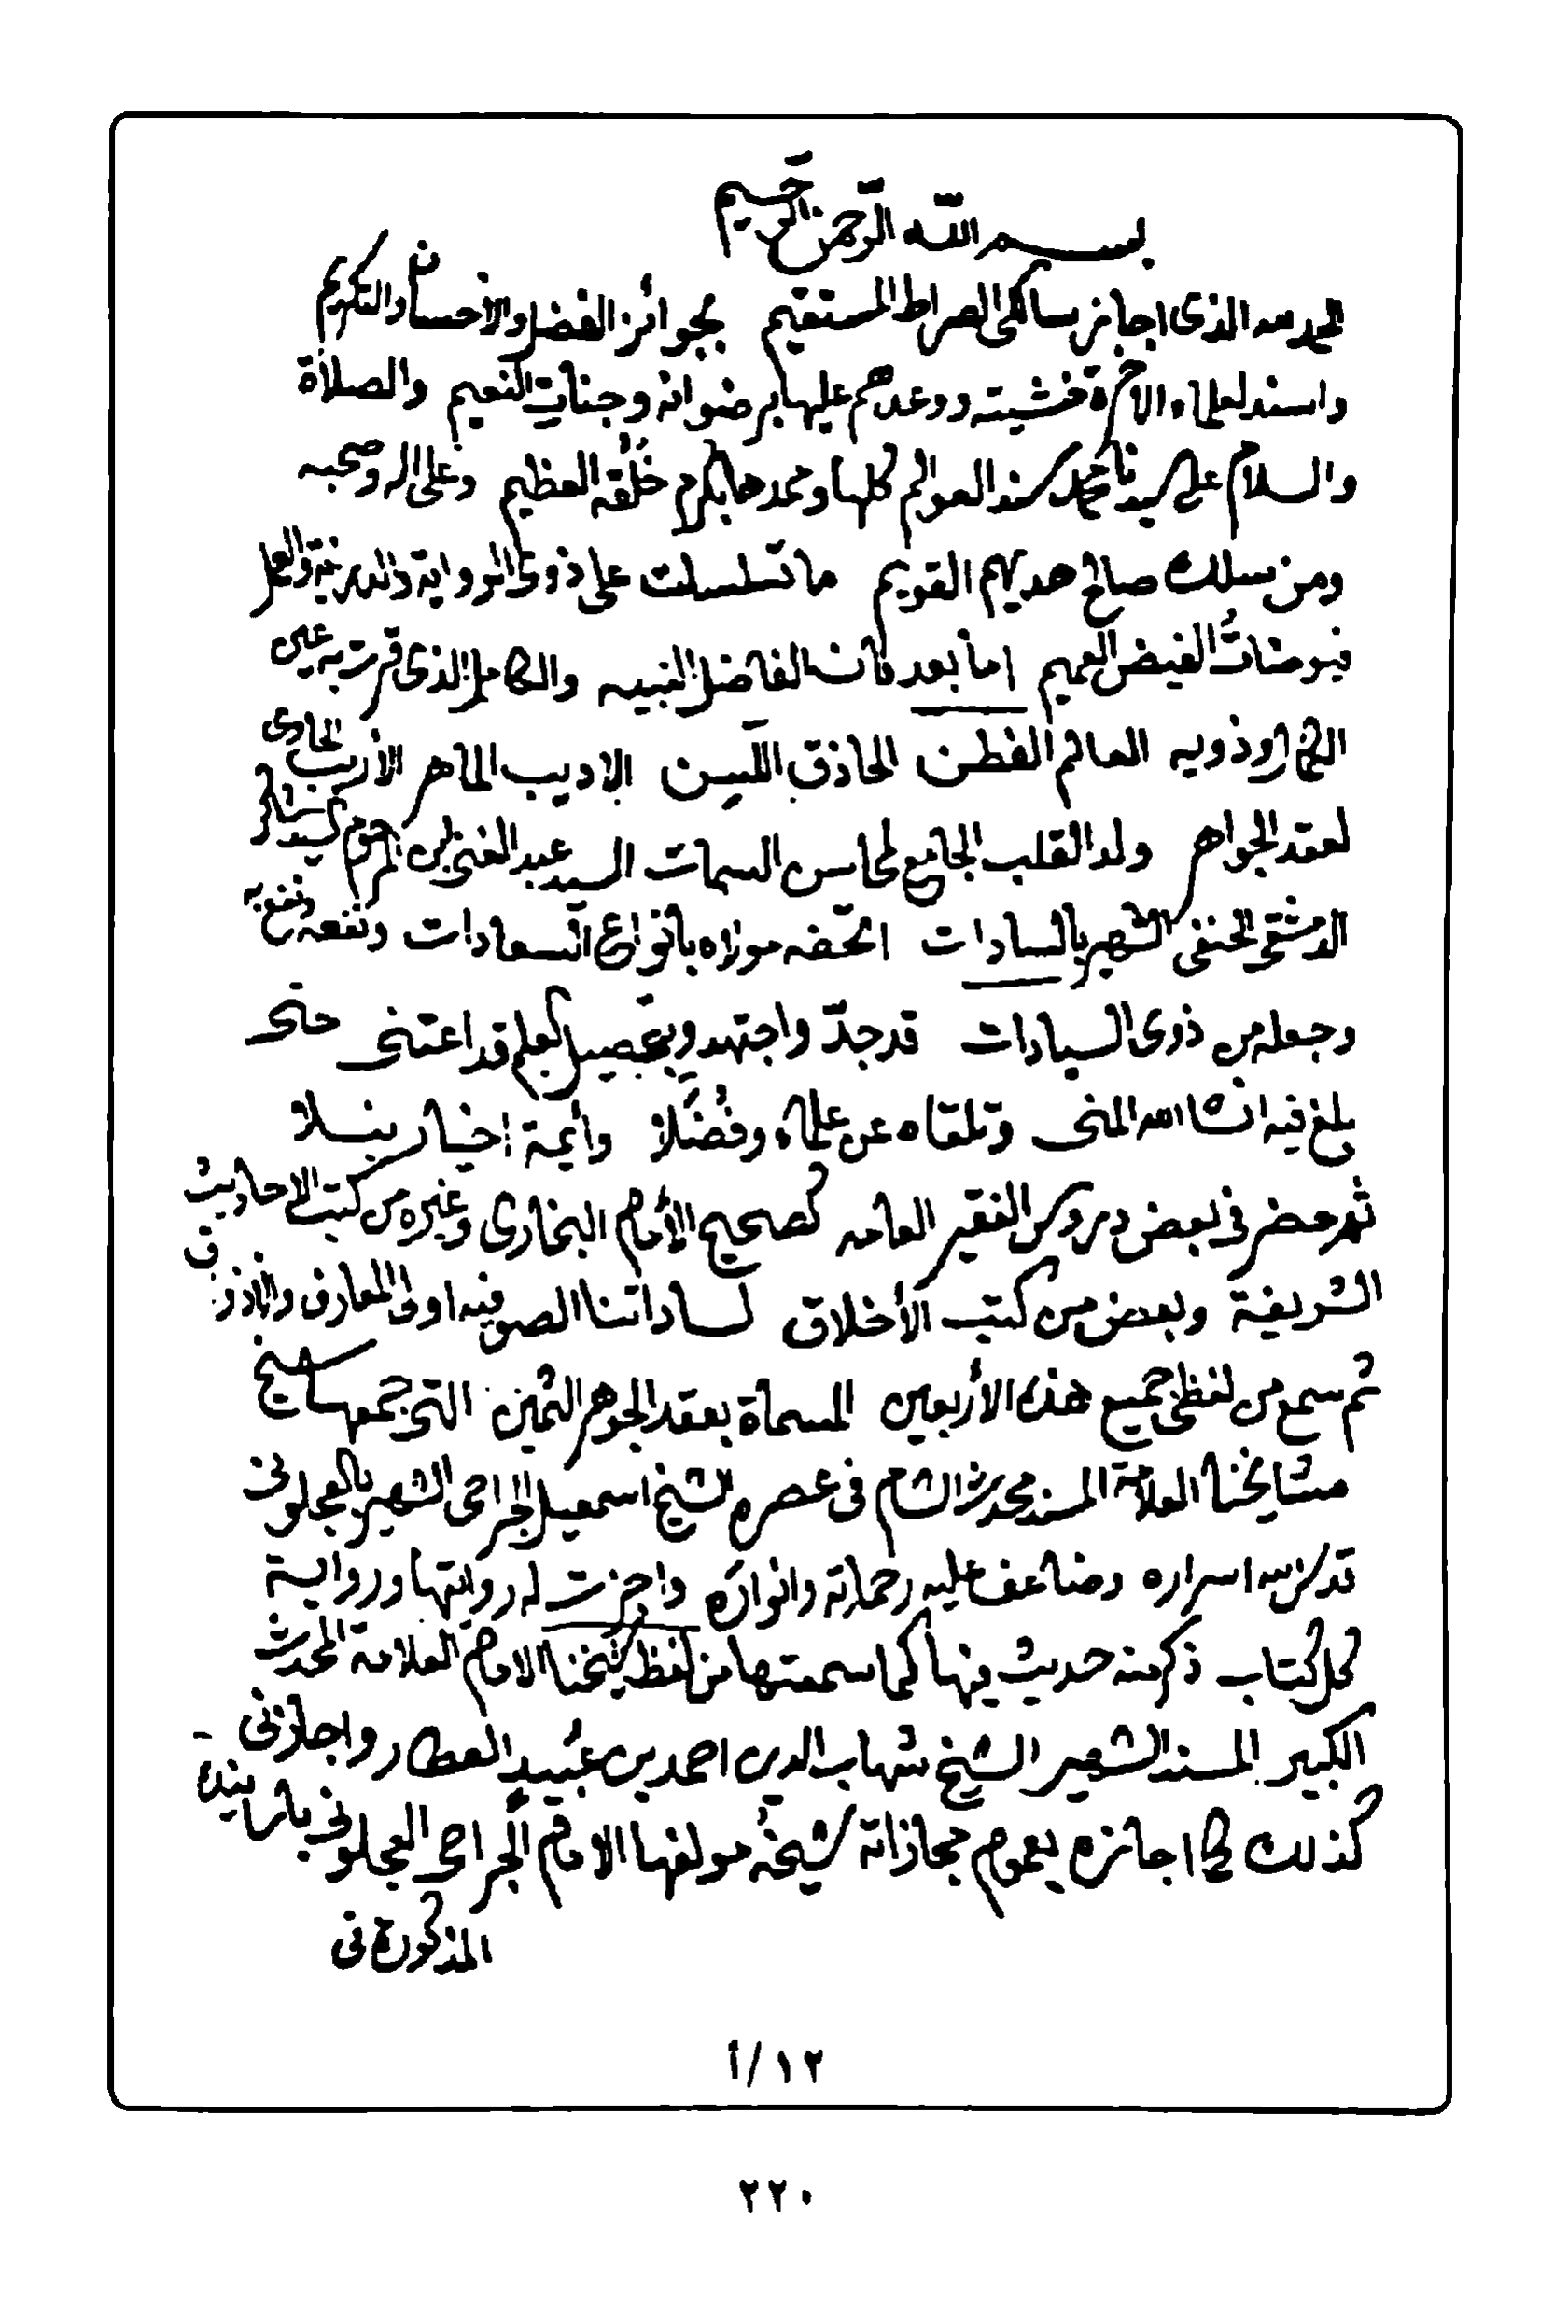 بسم الله الرحمن الرحيم
الحمد لله الذى اجاز سالكى الصراط المستقيم بجوائز الفضل والاحسان والتكريم
واسند لعلماء الاخرة خشيته ووعدهم عليها برضوانه وجنات النعيم والصلاة
والسلام على سيدنا محمد سند العوالم كلها وممدها بكرم خلقه العظيم وعلى اله وصحبه
ومن سلك صالح هديهم القويم ما تسلسلت على ذوى الرواية والدراية والعلم
فيوضات الفيض العميم اما بعد فان الفاضل النبيه والكامل الذى قرت به عين
وذويه العالم الفطن الحاذق اللسن الاديب الماهر الأريب الحاوى
لعقد الجواهر ولد القلب الجامع لمحاسن السمات السيد عبد الغنى بن المرحوم السيد
الدمشقى الحنفى الشهير بالسادات اتحفه مولاه بانواع السعادات ونفعه ونفع به
وجعله من ذوى السيادات قد جدّ واجتهد وبتحصيل العلم قد اعتنى حتى
بلغ فيه ان شا الله المنى وتلقاه عن علماء وفُضَلا وأيمة اخيار نبلا
ثم حضر فى بعض دروس الفقير العامه كصحيح الأمام البخارى وغيره من كتب الاحاديث
الشريفة وبعض من كتب الأخلاق لساداتنا الصوفيه اولى المعارف والاذواق
ثم سمع من لفظى جميع هذه الأربعين المسماة بعقد الجوهر الثمين التى جمعها شيخ
مشايخنا العلامة المسند محدث الشام فى عصره الشيخ اسمعيل الجراحى الشهير بالعجلونى
قدس الله اسراره وضاعف عليه رحماته وانواره واجزت له روايتها ورواية
كل كتاب ذكر منه حديث فيها كما سمعتها من لفظ شيخنا الامام العلامة المحدث
الكبير المسند الشهير الشيخ شهاب الدين احمد بن عُبَيد العطار واجازنى
كذلك كما اجازه بعموم مجازاته شيخه مولفها الامام الجراحى العجلونى باسانيده
المذكورة فى
١٢/أ
٢٢٠